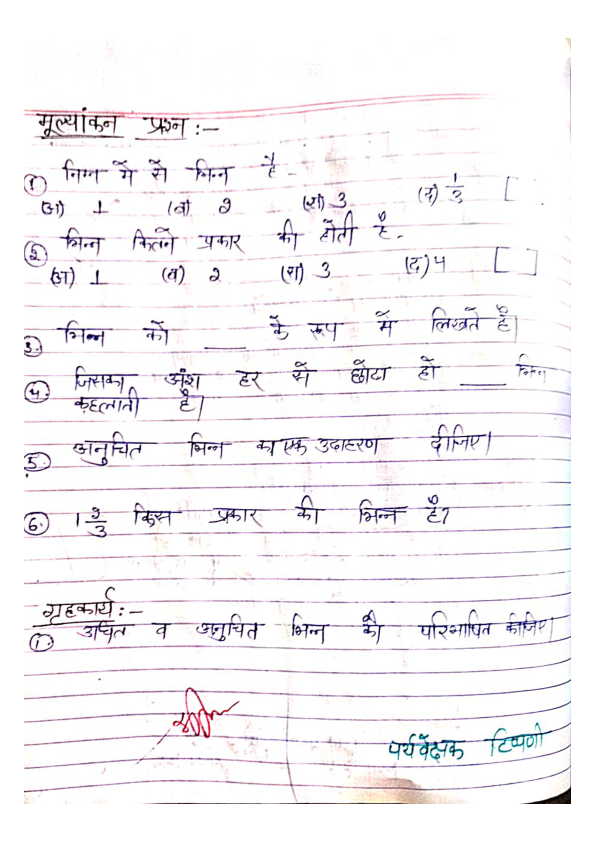 मूल्यांकन प्रश्न :-
① निम्न में से भिन्न है -
(अ) 1 (ब) 2 (स) 3 (द) 1/3 [
② भिन्न कितने प्रकार की होती है -
(अ) 1 (ब) 2 (स) 3 (द) 4 [ ]
3. भिन्न को ____ के रूप में लिखते है।
4. जिसका अंश हर से छोटा हो ____ भिन्न
कहलाती है।
5. अनुचित भिन्न का एक उदाहरण दीजिए।
6. 1 2/3 किस प्रकार की भिन्न है?
गृहकार्य :-
①. उचित व अनुचित भिन्न को परिभाषित कीजिए।
पर्यवेक्षक टिप्पणी